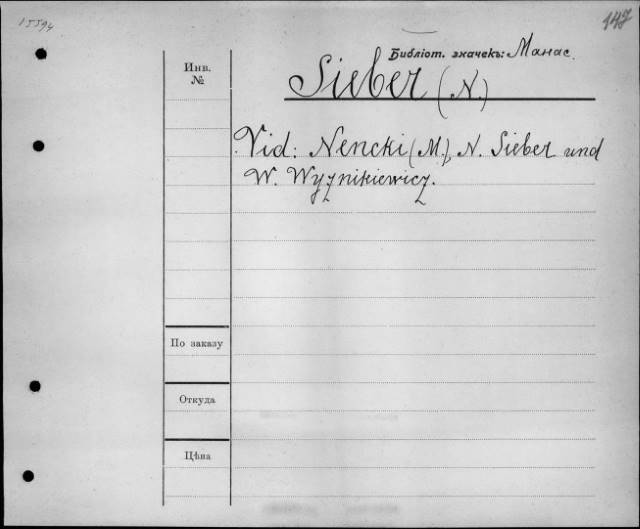 15594
147
Библіот. значекъ: Манас.
Инв.
№
Sieber (N.)
Vid: Nencki (M.), N. Sieber und
W. Wyżnikiewicz.
По заказу
Откуда
Цѣна